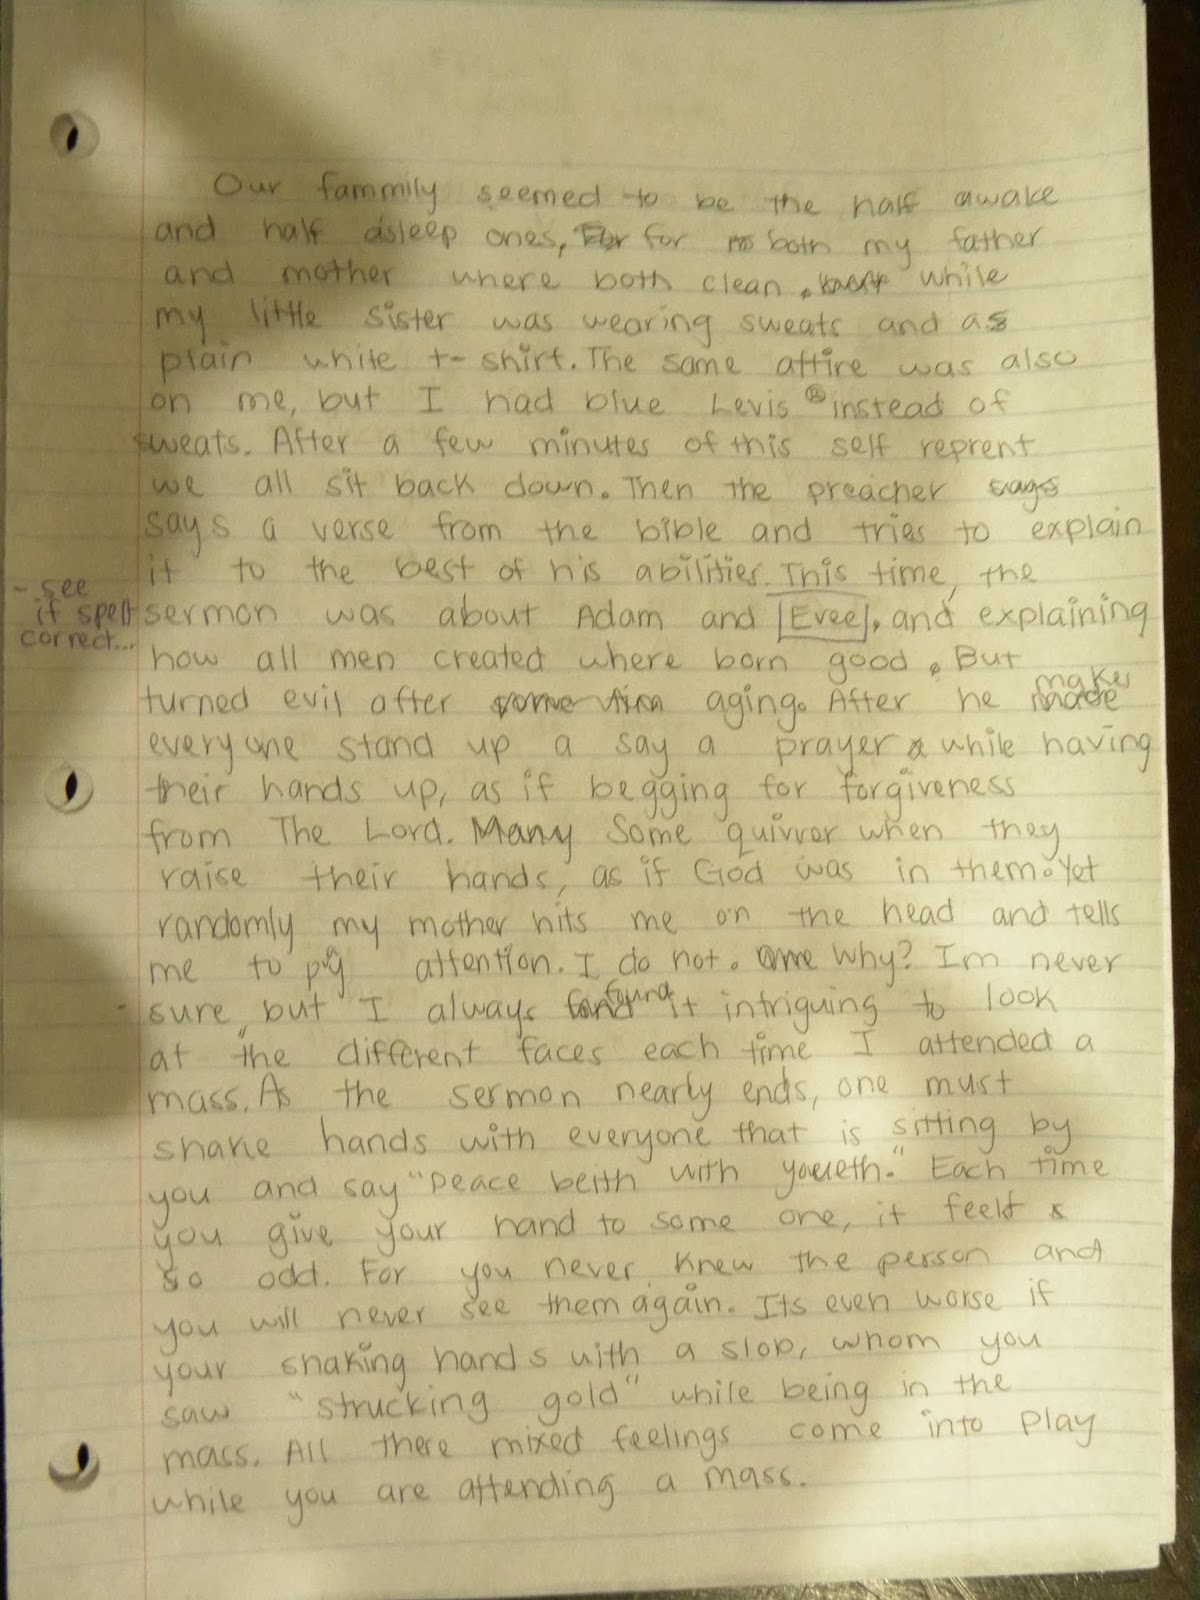 Our fammily seemed to be the half awake
and half asleep ones, For for both my father
and mother where both clean, while
my little sister was wearing sweats and a
plain white t-shirt. The same attire was also
on me, but I had blue Levis ® instead of
sweats. After a few minutes of this self reprent
we all sit back down. Then the preacher says
says a verse from the bible and tries to explain
it to the best of his abilities. This time, the
- see
if spelt
correct...
sermon was about Adam and Evee, and explaining
how all men created where born good. But
turned evil after some time aging. After he made makes
everyone stand up a say a prayer while having
their hands up, as if begging for forgiveness
from The Lord. Many Some quivver when they
raise their hands, as if God was in them. Yet
randomly my mother hits me on the head and tells
me to attention. I do not. Why? Im never
sure, but I always find found it intriguing to look
at the different faces each time I attended a
mass. As the sermon nearly ends, one must
shake hands with everyone that is sitting by
you and say "Peace beith with Each time
you give your hand to some one, it
so odd. For you never knew the person and
you will never see them again. Its even worse if
your shaking hands with a slob, whom you
saw "strucking gold" while being in the
mass. All there mixed feelings come into play
while you are attending a mass.